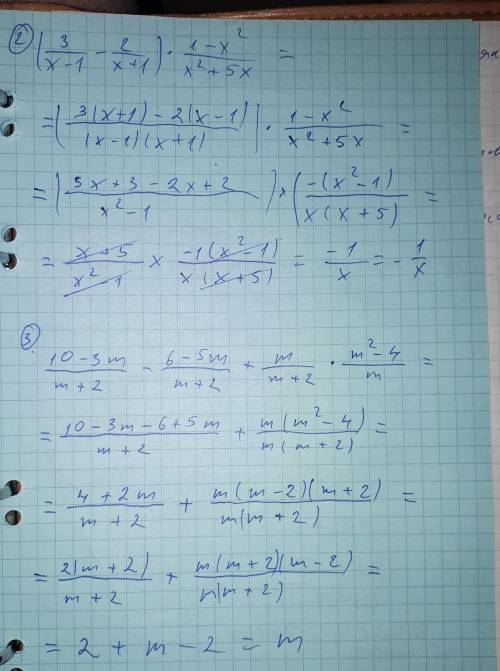 ② (3/(x-1) - 2/(x+1)) · (1-x²)/(x²+5x) =
= (3(x+1)-2(x-1))/((x-1)(x+1)) · (1-x²)/(x²+5x) =
= (3x+3-2x+2)/(x²-1) × (-(x²-1))/(x(x+5)) =
= (x+5)/(x²-1) × (-1(x²-1))/(x(x+5)) = -1/x = -1/x
③ (10-3m)/(m+2) - (6-5m)/(m+2) + m/(m+2) · (m²-4)/m =
= (10-3m-6+5m)/(m+2) + (m(m²-4))/(m(m+2)) =
= (4+2m)/(m+2) + (m(m-2)(m+2))/(m(m+2)) =
= (2(m+2))/(m+2) + (m(m+2)(m-2))/(m(m+2)) =
= 2 + m - 2 = m